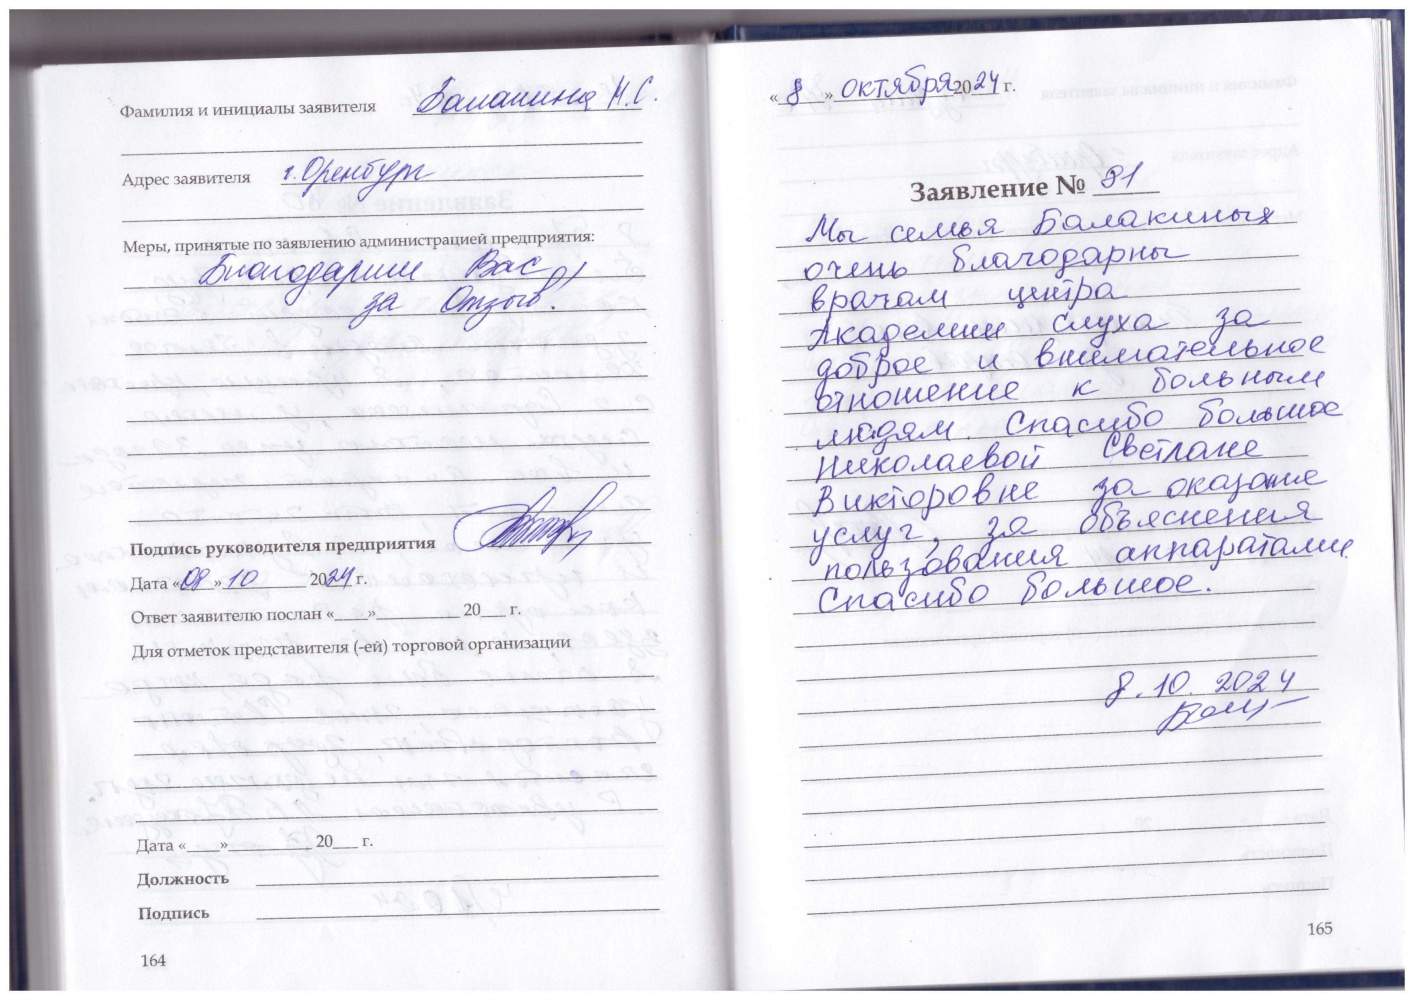 Фамилия и инициалы заявителя Балакина Н.С.
Адрес заявителя г. Оренбург
Меры, принятые по заявлению администрацией предприятия:
Благодарим Вас
за Отзыв!
Подпись руководителя предприятия
Дата «08» 10 2024 г.
Ответ заявителю послан «___»__________ 20___ г.
Для отметок представителя (-ей) торговой организации
Дата «____»__________ 20___ г.
Должность
Подпись
164
« 8 » октября 2024 г.
Заявление № 91
Мы семья Балакиных
очень благодарны
врачам центра
Академии слуха за
доброе и внимательное
отношение к больным
людям. Спасибо большое
Николаевой Светлане
Викторовне за оказание
услуг, за объяснения
пользования аппаратами.
Спасибо большое.
8.10.2024
165